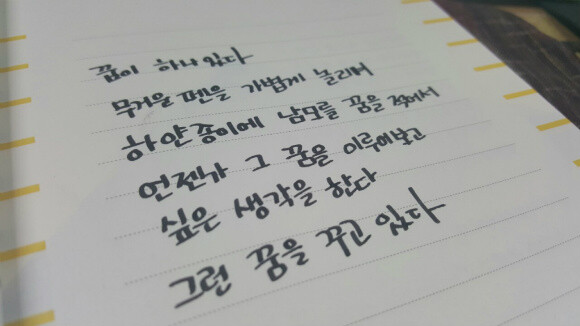 꿈이 하나 있다
무거운 펜을 가볍게 놀리며
하얀종이에 남모를 꿈을 적어서
언젠가 그 꿈을 이루어보고
싶은 생각을 한다
그런 꿈을 꾸고 있다